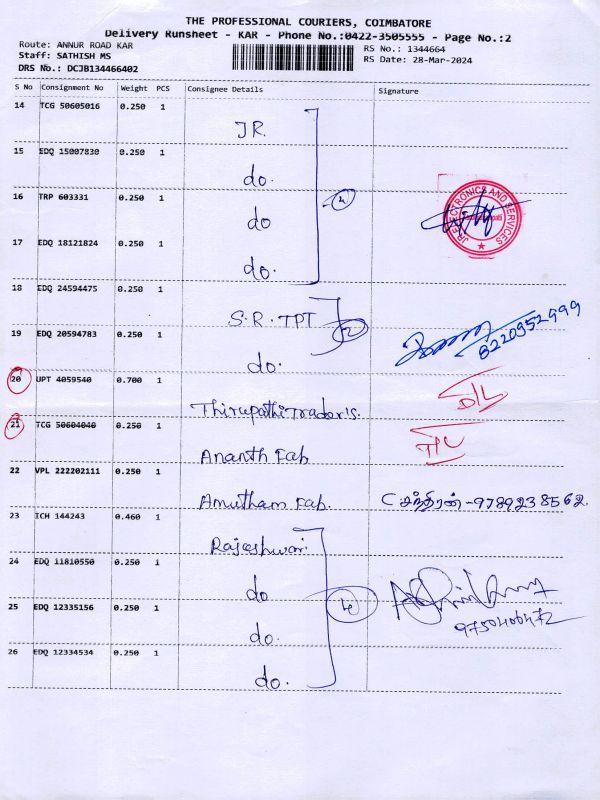 THE PROFESSIONAL COURIERS, COIMBATORE
Delivery Runsheet - KAR - Phone No.:0422-3505555 - Page No.:2
Route: ANNUR ROAD KAR
RS No.: 1344664
Staff: SATHISH MS
RS Date: 28-Mar-2024
DRS No.: DCJB134466402
S No Consignment No Weight PCS Consignee Details Signature
14 TCG 50605016 0.250 1
JR.
15 EDQ 15007830 0.250 1
do.
16 TRP 603331 0.250 1
4
JR ELECTRONICS AND SERVICES
do
17 EDQ 18121824 0.250 1
do.
18 EDQ 24594475 0.250 1
S.R. TPT
2
8220952999
19 EDQ 20594783 0.250 1
do.
20 UPT 4059540 0.700 1
D/L
Thirupathi Trador's.
21 TCG 50604040 0.250 1
Ananth Fab
22 VPL 222202111 0.250 1
Amutham Fab. C சந்திரன் - 9789238562.
23 ICH 144243 0.460 1
Rajeshwari
24 EDQ 11810550 0.250 1
do
25 EDQ 12335156 0.250 1
9750406472
do.
26 EDQ 12334534 0.250 1
do.